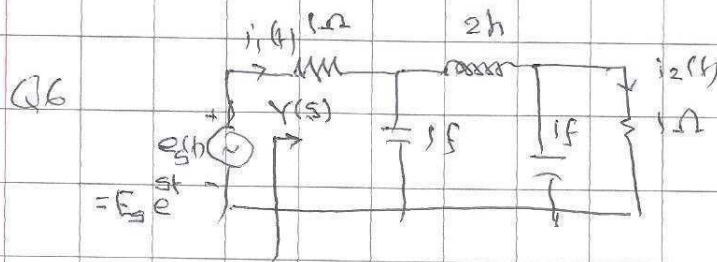 i₁(t) 1Ω 2h i₂(t)
Q6
+ Y(S) 1f 1f 1Ω
eₛ(t)
-
= Eₛ e^st